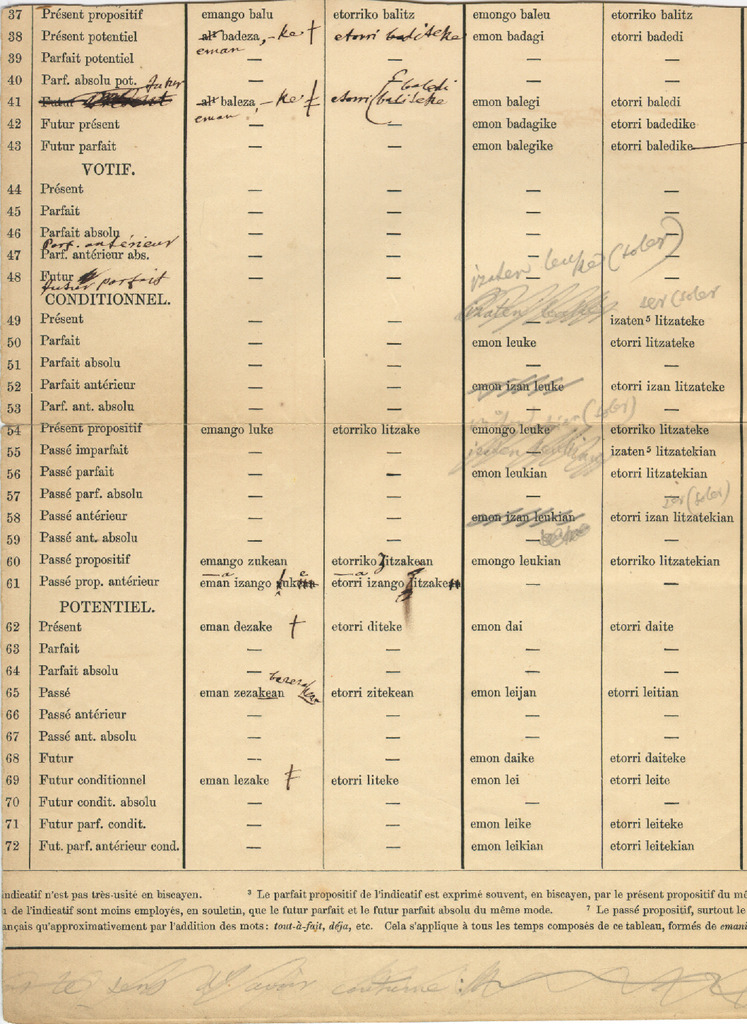 37 Présent propositif emango balu etorriko balitz emongo baleu etorriko balitz
38 Présent potentiel alt badeza, - ke † etorri baliteke emon badagi etorri badedi
eman
39 Parfait potentiel — — — —
40 Parf. absolu pot. — — — —
futur baledi
41 alt baleza, - ke † etorri (baliteke emon balegi etorri baledi
eman
42 Futur présent — — emon badagike etorri badedike
43 Futur parfait — — emon balegike etorri baledike
VOTIF.
44 Présent — — — —
45 Parfait — — — —
46 Parfait absolu — — — —
Parf. antérieur
47 Parf. antérieur abs. — — — —
izaten leuke (soler)
48 Futur — — — —
futur parfait
CONDITIONNEL.
(soler
49 Présent — — — izaten⁵ litzateke
50 Parfait — — emon leuke etorri litzateke
51 Parfait absolu — — — —
52 Parfait antérieur — — emon izan leuke etorri izan litzateke
53 Parf. ant. absolu — — — —
(soler)
54 Présent propositif emango luke etorriko litzake emongo leuke etorriko litzateke
55 Passé imparfait — — izaten⁵ litzatekian
56 Passé parfait — — emon leukian etorri litzatekian
57 Passé parf. absolu — — — —
(soler)
58 Passé antérieur — — emon izan leukian etorri izan litzatekian
59 Passé ant. absolu — — — —
60 Passé propositif emango zukean etorriko litzakean emongo leukian etorriko litzatekian
61 Passé prop. antérieur eman izango etorri izango — —
POTENTIEL.
62 Présent eman dezake † etorri diteke emon dai etorri daite
63 Parfait — — — —
64 Parfait absolu — — — —
65 Passé eman zezakean etorri zitekean emon leijan etorri leitian
66 Passé antérieur — — — —
67 Passé ant. absolu — — — —
68 Futur — — emon daike etorri daiteke
69 Futur conditionnel eman lezake † etorri liteke emon lei etorri leite
70 Futur condit. absolu — — — —
71 Futur parf. condit. — — emon leike etorri leiteke
72 Fut. parf. antérieur cond. — — emon leikian etorri leitekian
indicatif n'est pas très-usité en biscayen. ³ Le parfait propositif de l'indicatif est exprimé souvent, en biscayen, par le présent propositif du mê
de l'indicatif sont moins employés, en souletin, que le futur parfait et le futur parfait absolu du même mode. ⁷ Le passé propositif, surtout le
ançais qu'approximativement par l'addition des mots: tout-à-fait, déja, etc. Cela s'applique à tous les temps composés de ce tableau, formés de emani
sens d'avoir coutume :